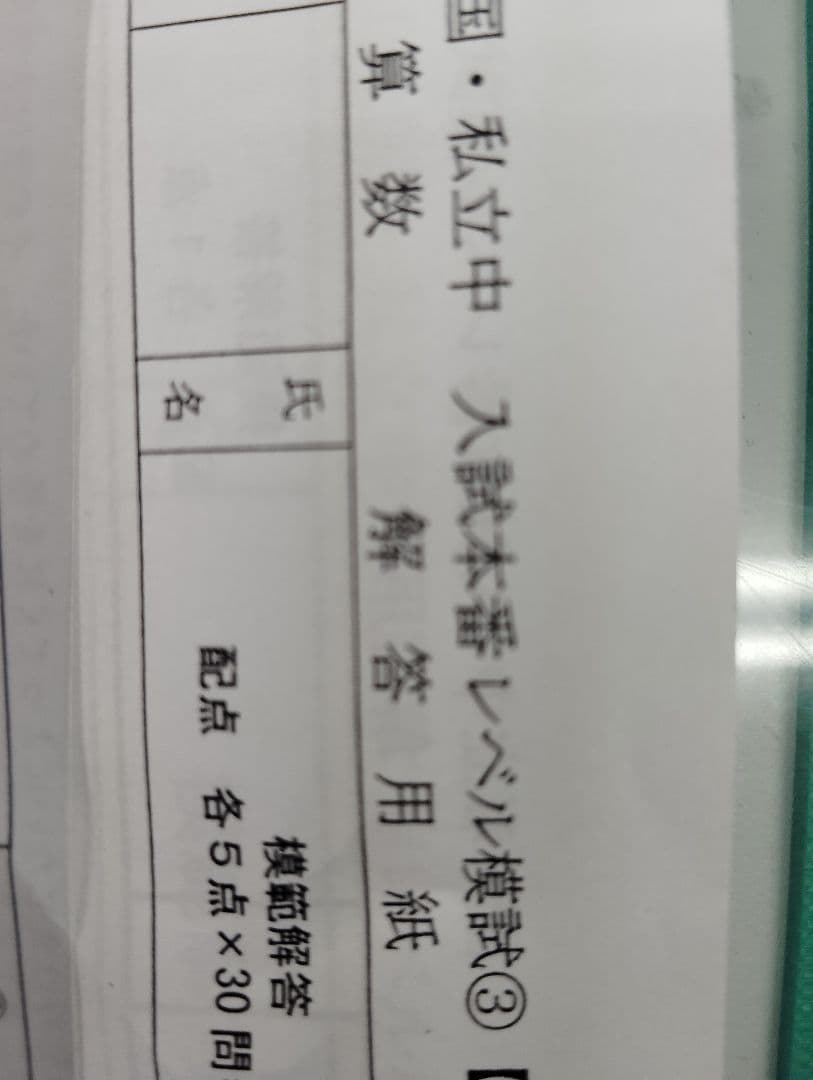 国・私立中 入試本番レベル模試③【
算数 解答用紙
氏名
模範解答
配点 各5点×30問